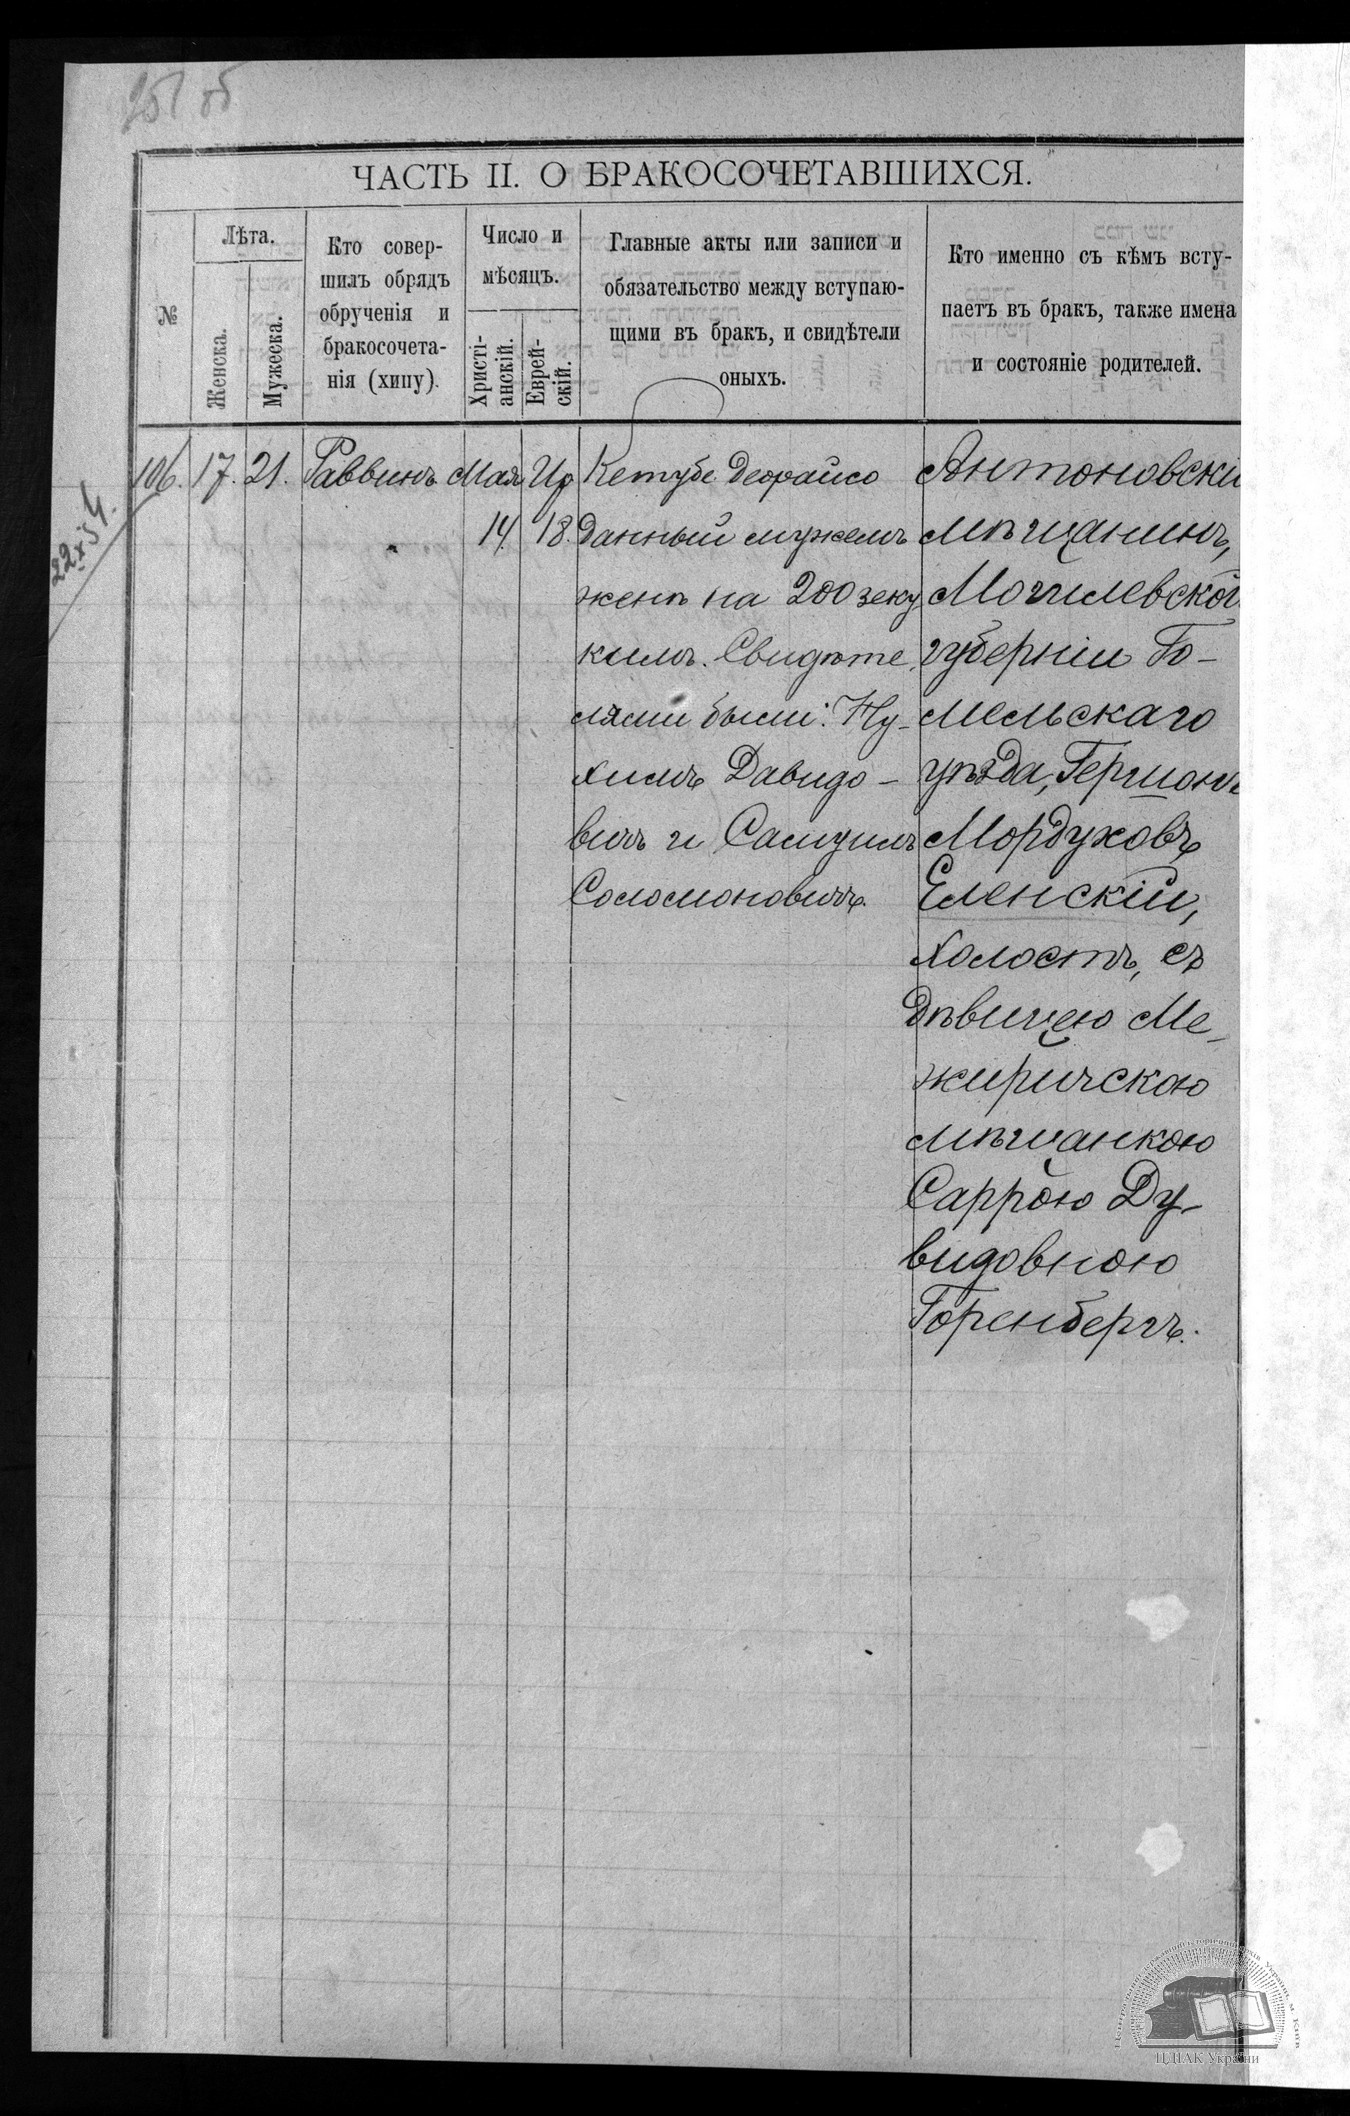 251 об
ЧАСТЬ II. О БРАКОСОЧЕТАВШИХСЯ.
№
Лѣта.
Женска.
Мужеска.
Кто совер-
шилъ обрядъ
обрученія и
бракосочета-
нія (хипу).
Число и
мѣсяцъ.
Христі-
анскій.
Еврей-
скій.
Главные акты или записи и
обязательство между вступаю-
щими въ бракъ, и свидѣтели
оныхъ.
Кто именно съ кѣмъ всту-
паетъ въ бракъ, также имена
и состояніе родителей.
106.
17.
21.
Раввинъ
Мая
14.
Ир
18.
Кетубе деорайсо
данный мужемъ
женѣ на 200 зеку
кимъ. Свидѣте
лями были: Ну-
химъ Давидо-
вичъ и Самуилъ
Соломоновичъ.
Антоновскій
мѣщанинъ,
Могилевской
губерніи Го-
мельскаго
уѣзда, Гершонъ
Мордуховъ
Еленскій,
холостъ, съ
дѣвицею Ме-
жиричскою
мѣщанкою
Саррою Ду-
видовною
Горенбергъ.
ЦДІАК України